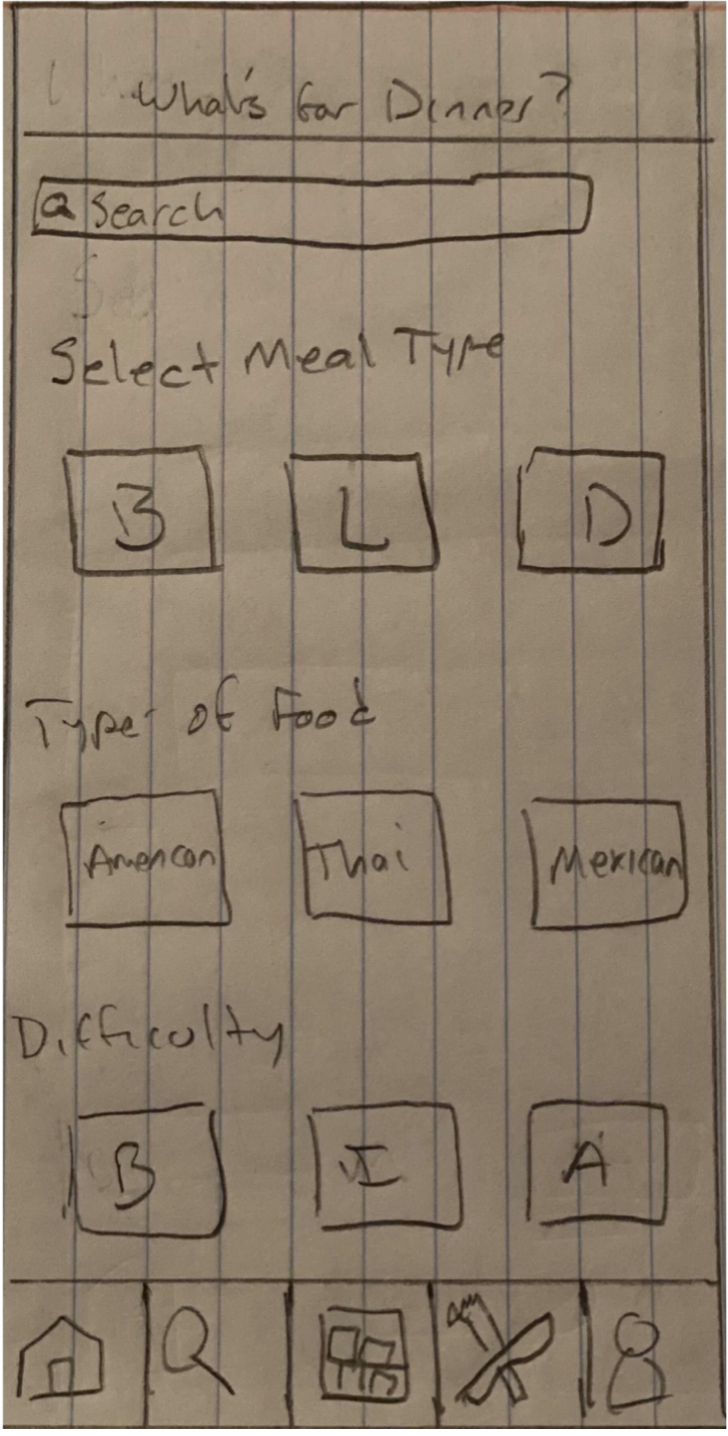 What's for Dinner?
Search
Select Meal Type
B L D
Type of Food
American Thai Mexican
Difficulty
B I A